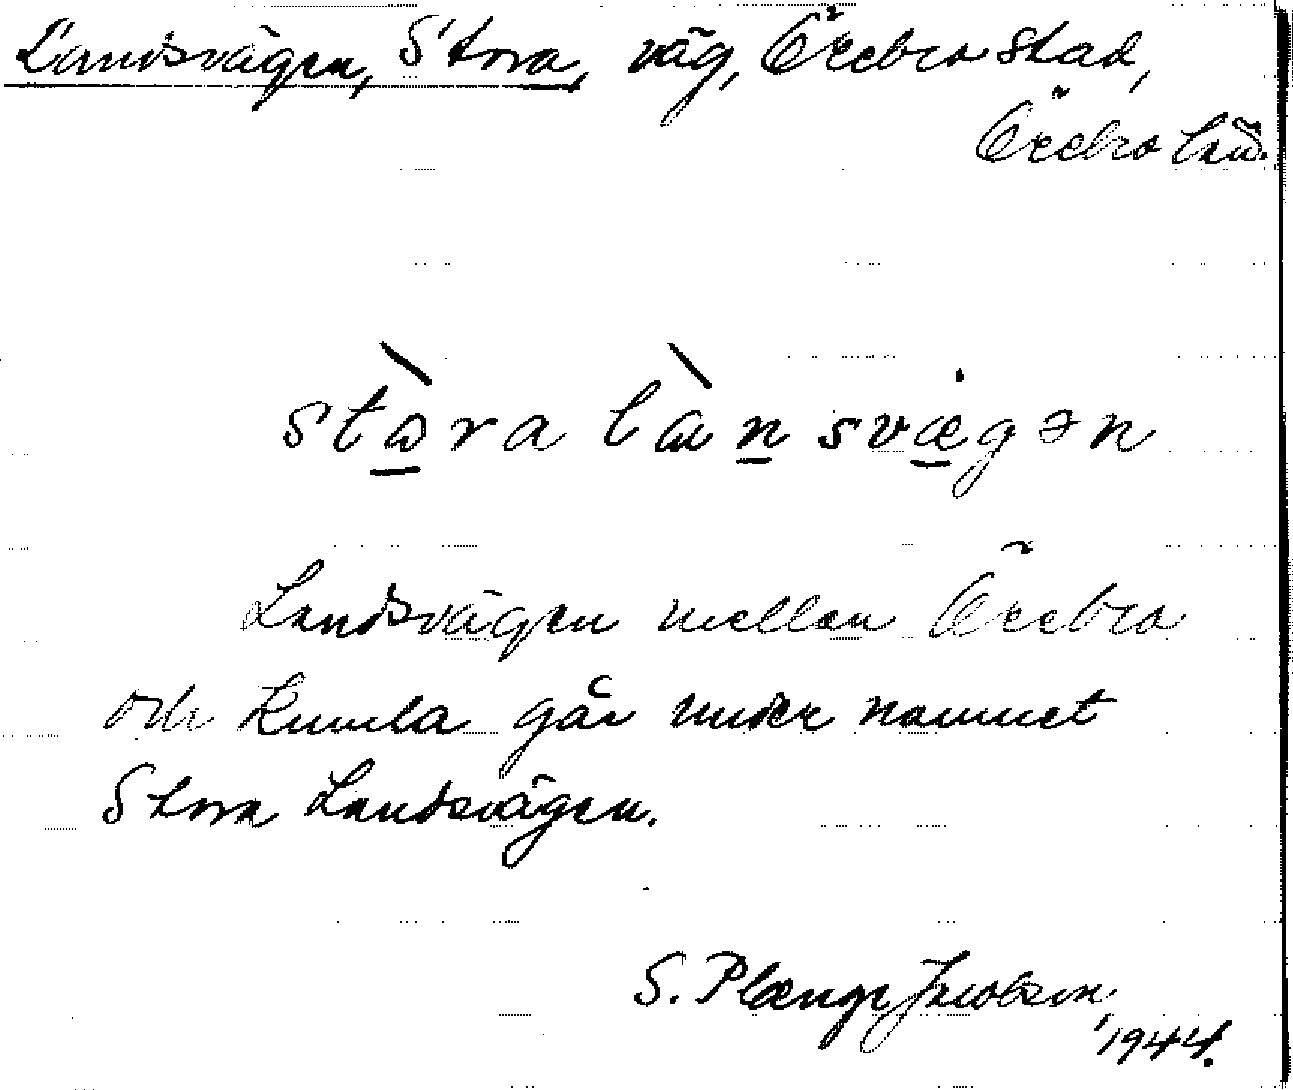 Landsvägen, Stora, väg, Örebro stad,
Örebro län.
stɷ̀ra làn̠svægən
Landsvägen mellan Örebro
och Kumla går under namnet
Stora Landsvägen.
S. Plænge Jacobson,
1944.